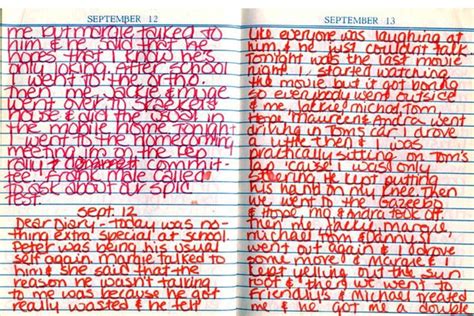 SEPTEMBER 12
me, but margie talked to
him & he said that he
hopes that I know he's
only jok'n. After school
I went to the ortho.
then me, Jackie, & muge
went over to Skeeker's
house & did the usual in
the mobile home. Tonight
I went to the homecoming
meeting I'm on the pep
rally & commit-
tee. Frank male called
to ask about our spic
test.
Sept. 12
Dear Diary - today was no-
thing extra special at school.
Peter was being his usual
self again. margie talked to
him & she said that the
reason he wasn't talking
to me was because he got
really wasted & he felt
SEPTEMBER 13
like everyone was laughing at
him, & he just couldn't talk.
Tonight was the last movie
night. I started watching
the movie but it got boring
so everybody went outside
& me, Jackie, michal, Tom,
Hope, maureen & Andra went
driving in Tom's car. I drove
a little then & I was
practically sitting on Tom's
lap 'cause I was only
steering. He kept putting
his hand on my knee. Then
we went to the Gazeebo
& Hope, mo, & Andra took off.
Then me, Jacky, margie,
michael, Tom & Benny
went out again & I drove
some more & Margie &
kept yelling out the sun
roof & then we went to
Friendly's & Michael treated
me & he got me a double